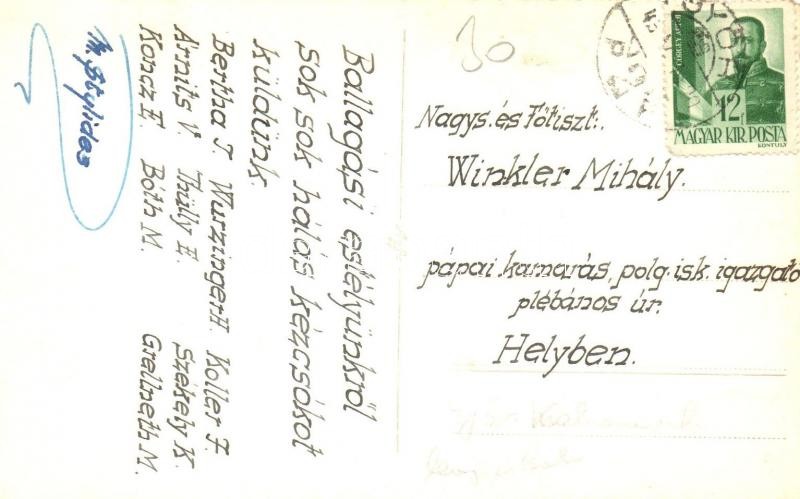 Ballagási estélyünkről
sok sok hálás kézcsókot
küldünk.
Bertha J. Wurzinger H Koller F.
Arnits V. Thülly E. Székely K.
Koncz E. Bóth M. Grellneth M.
30
GÖRGEY ARTUR
12f
MAGYAR KIR. POSTA
KONTULY
Nagys. és Főtiszt:.
Winkler Mihály.
pápai kamarás, polg. isk. igazgató
plébános úr.
Helyben.